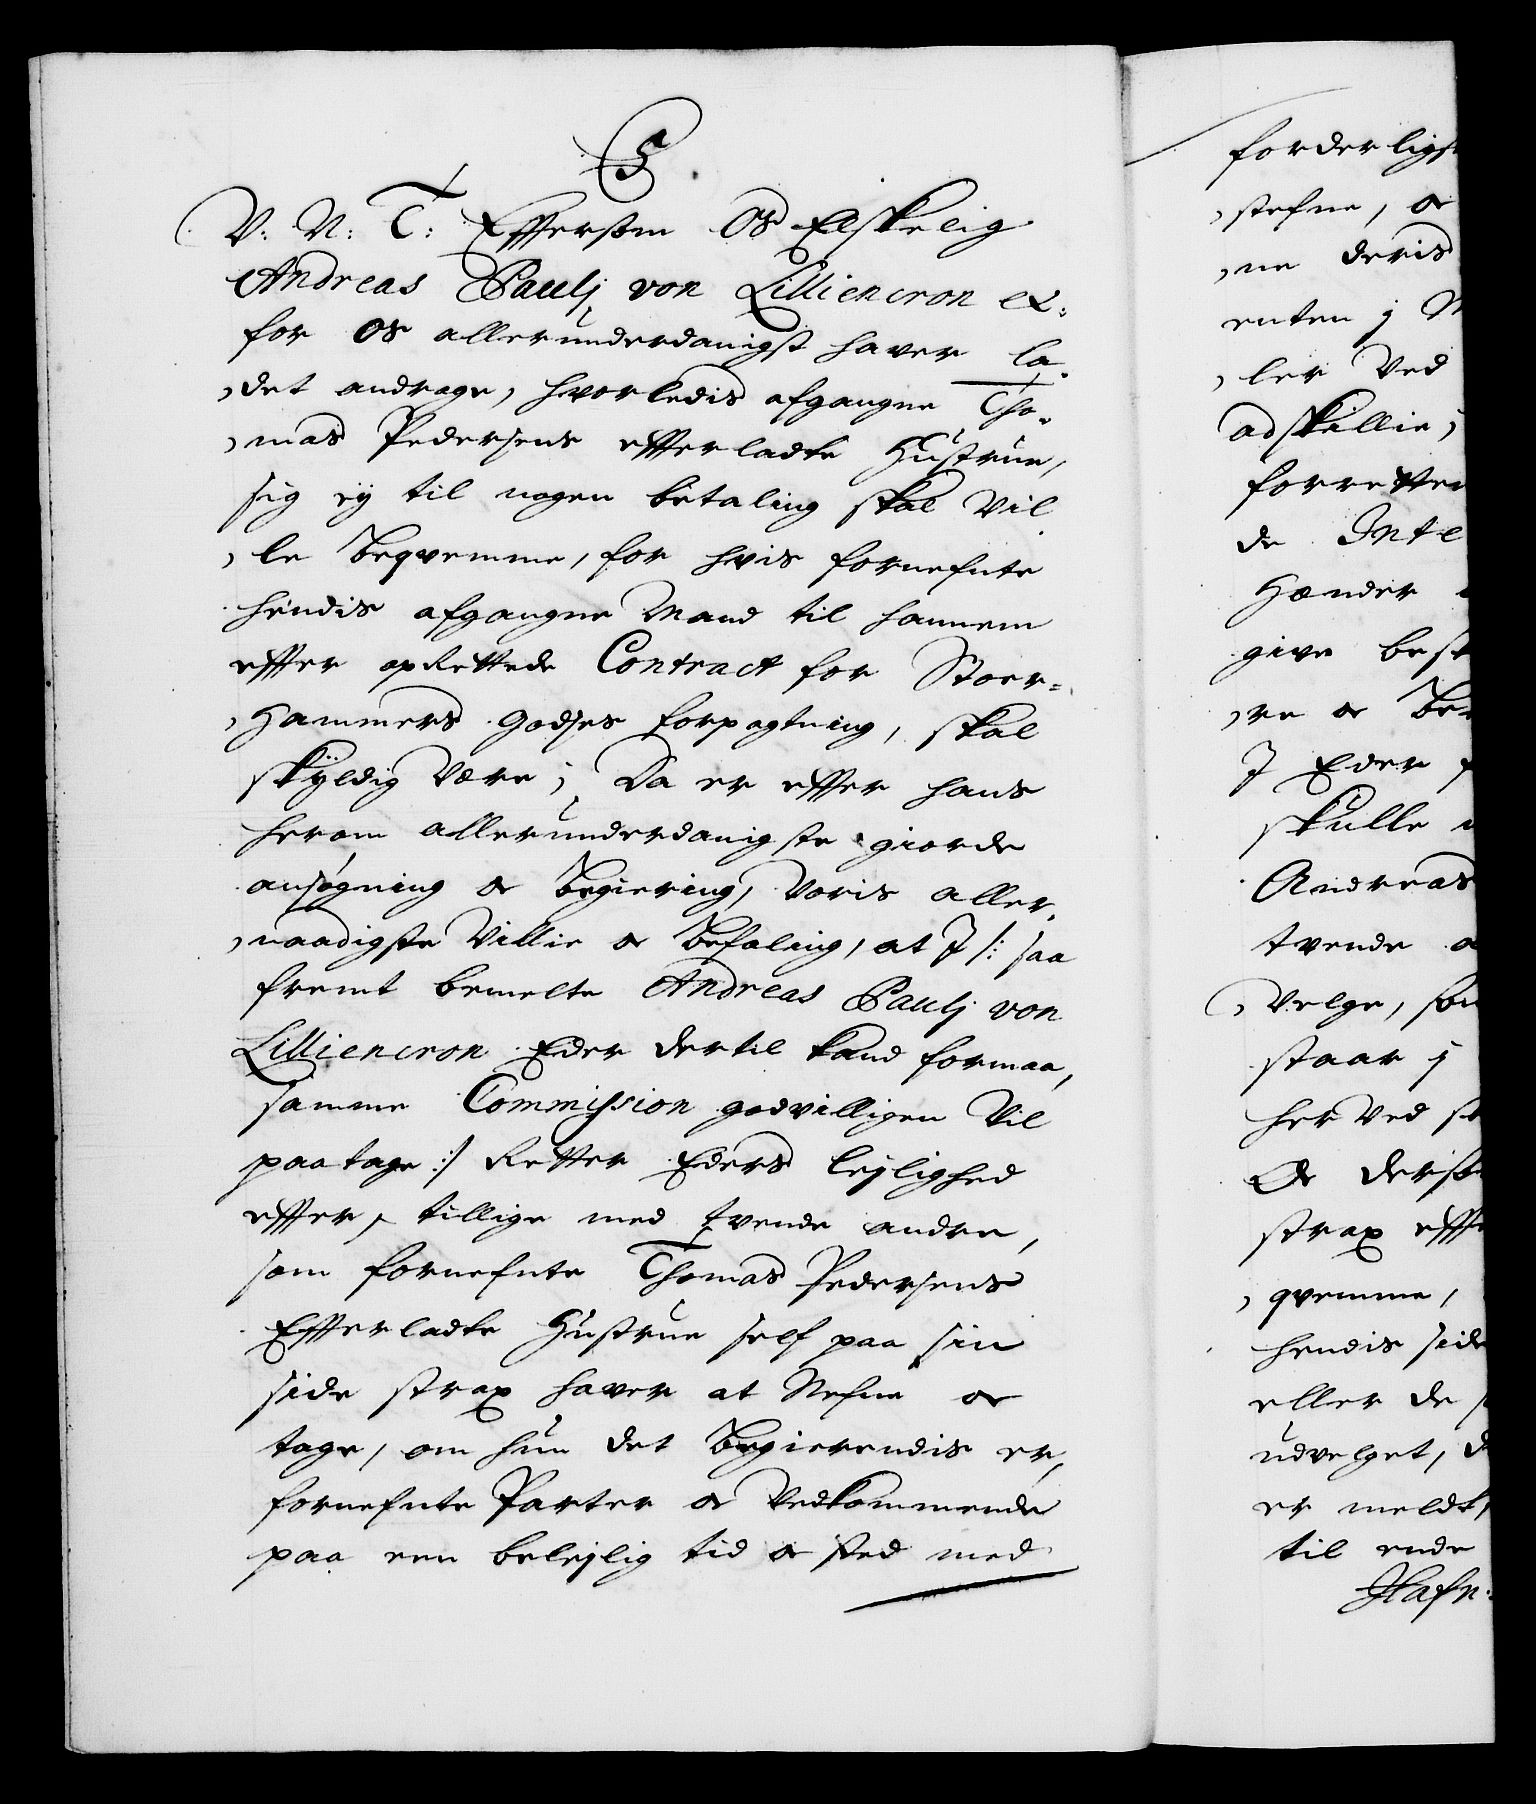 5.
V: V: T: Effersom Os Elskelig
Andreas Paulj von Lilliencron etc:
for Os allerunderdanigst haver la-
det andrage, hvorledis afgangne Tho-
mas Pedersens efterladte Hustrue,
sig ej til nogen betaling skal vil
le beqvemme, for hvis fornefnte
hendis afgangne Mand til hannem
effter oprettede Contract for Stoer-
Hammers Godses forpagtning, skal
skÿldig være; Da er effter hans
herom allerunderdanigste giorde
ansøgning oc begiering, Voris aller-
naadigste Villie oc befaling, at J /: saa
fremt bemelte Andreas Paulj von
Lilliencron Eder dertil kand formaa,
samme Commission godvilligen vil
paatage :/ Retter Eders lejlighed
effter, tillige med tvende andre,
som fornefnte Thomas Pedersens
Effterladte Hustrue self paa sin
side strax haver at Nefne oc
tage, om hun det begierendis er,
fornefnte Parter oc Vedkommende
paa een belejlig tid oc sted med
forderligst
stefne, oc
ne deris
enten j M
ler Ved
adskillie,
forretter
de Intl
Hænder
give besk
re oc be
J Eder
skulle
Andreas
tvende
Velge, som
staar j
her Ved
Oc derso
strax efft
qvemme,
hendis side
eller de
udvelget, d
er meldt,
til ende
Hafn: